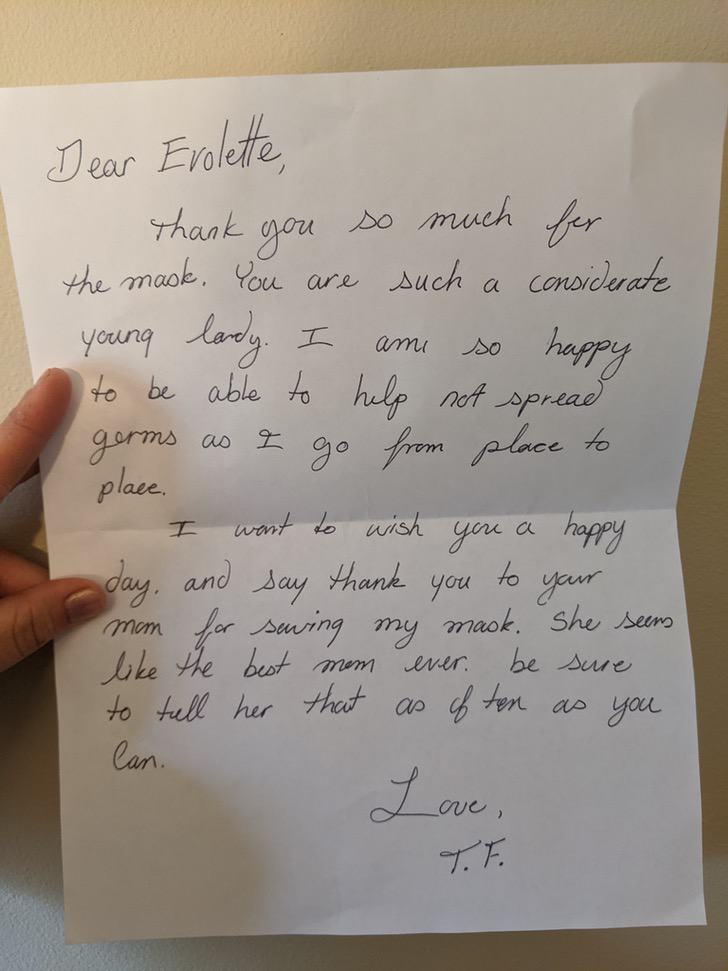 Dear Evolette,
Thank you so much for
the mask. You are such a considerate
young lady. I am so happy
to be able to help not spread
germs as I go from place to
place.
I want to wish you a happy
day. and say thank you to your
mom for sewing my mask. She seems
like the best mom ever. be sure
to tell her that as often as you
can.
Love,
T.F.